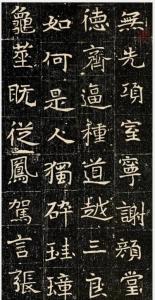 無先項室寧謝顏堂
德齊逼種道越三良
如何是人獨碎珪璋
龜莁既從鳳駕言張